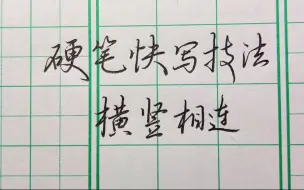 硬笔快写技法
横竖相连